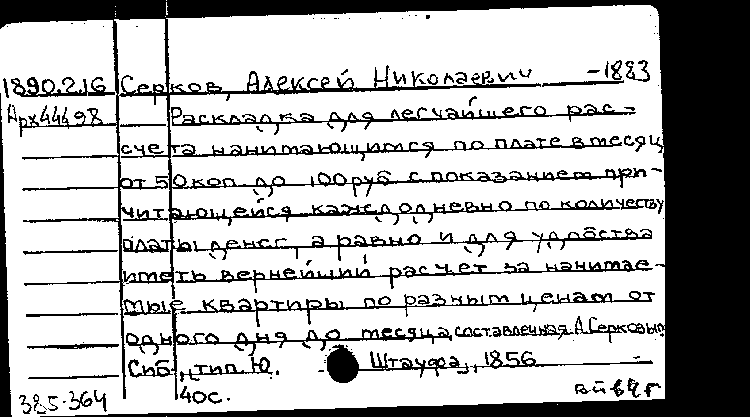 1890.2.16 Серков, Алексей Николаевич -1883
Арх44498 Раскладка для легчайшего рас-
счета нанимающимся по плате в месяц
от 50 коп. до 100 руб с показанием при-
читающейся каждодневно по количеству
платы денег, а равно и для удобства
иметь вернейший расчет за нанимае-
мые квартиры по разным ценам от
одного дня до месяца, составленная А.Серковым
Спб., тип. Ю. Штауфа, 1856
385-364 40с.